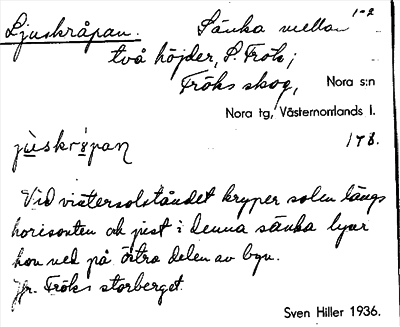 Ljuskråpan. Sänka mellan 1-2
två höjder, S. Frök;
Fröks skog, Nora s:n
Nora tg, Västernorrlands l.
jùskrápan 178.
Vid vintersolståndet kryper solen längs
horisonten och just i denna sänka lyser
hon ned på östra delen av byn.
Jfr. Fröks storberget.
Sven Hiller 1936.